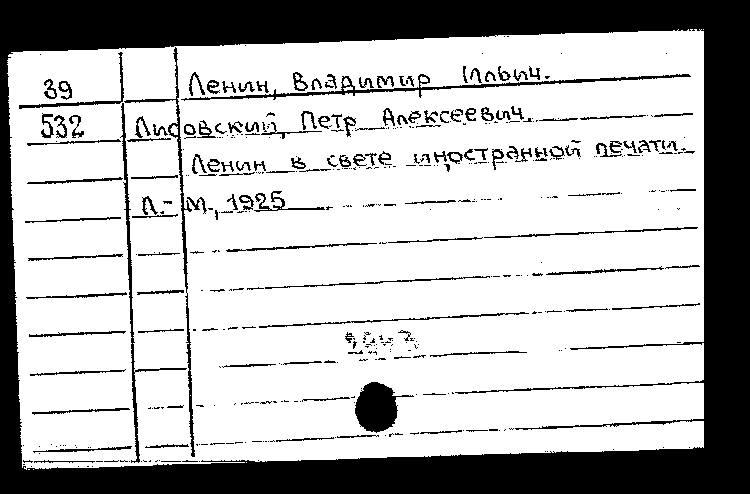 39 Ленин, Владимир Ильич.
532 Лисовский, Петр Алексеевич.
Ленин в свете иностранной печати.
Л.-М., 1925